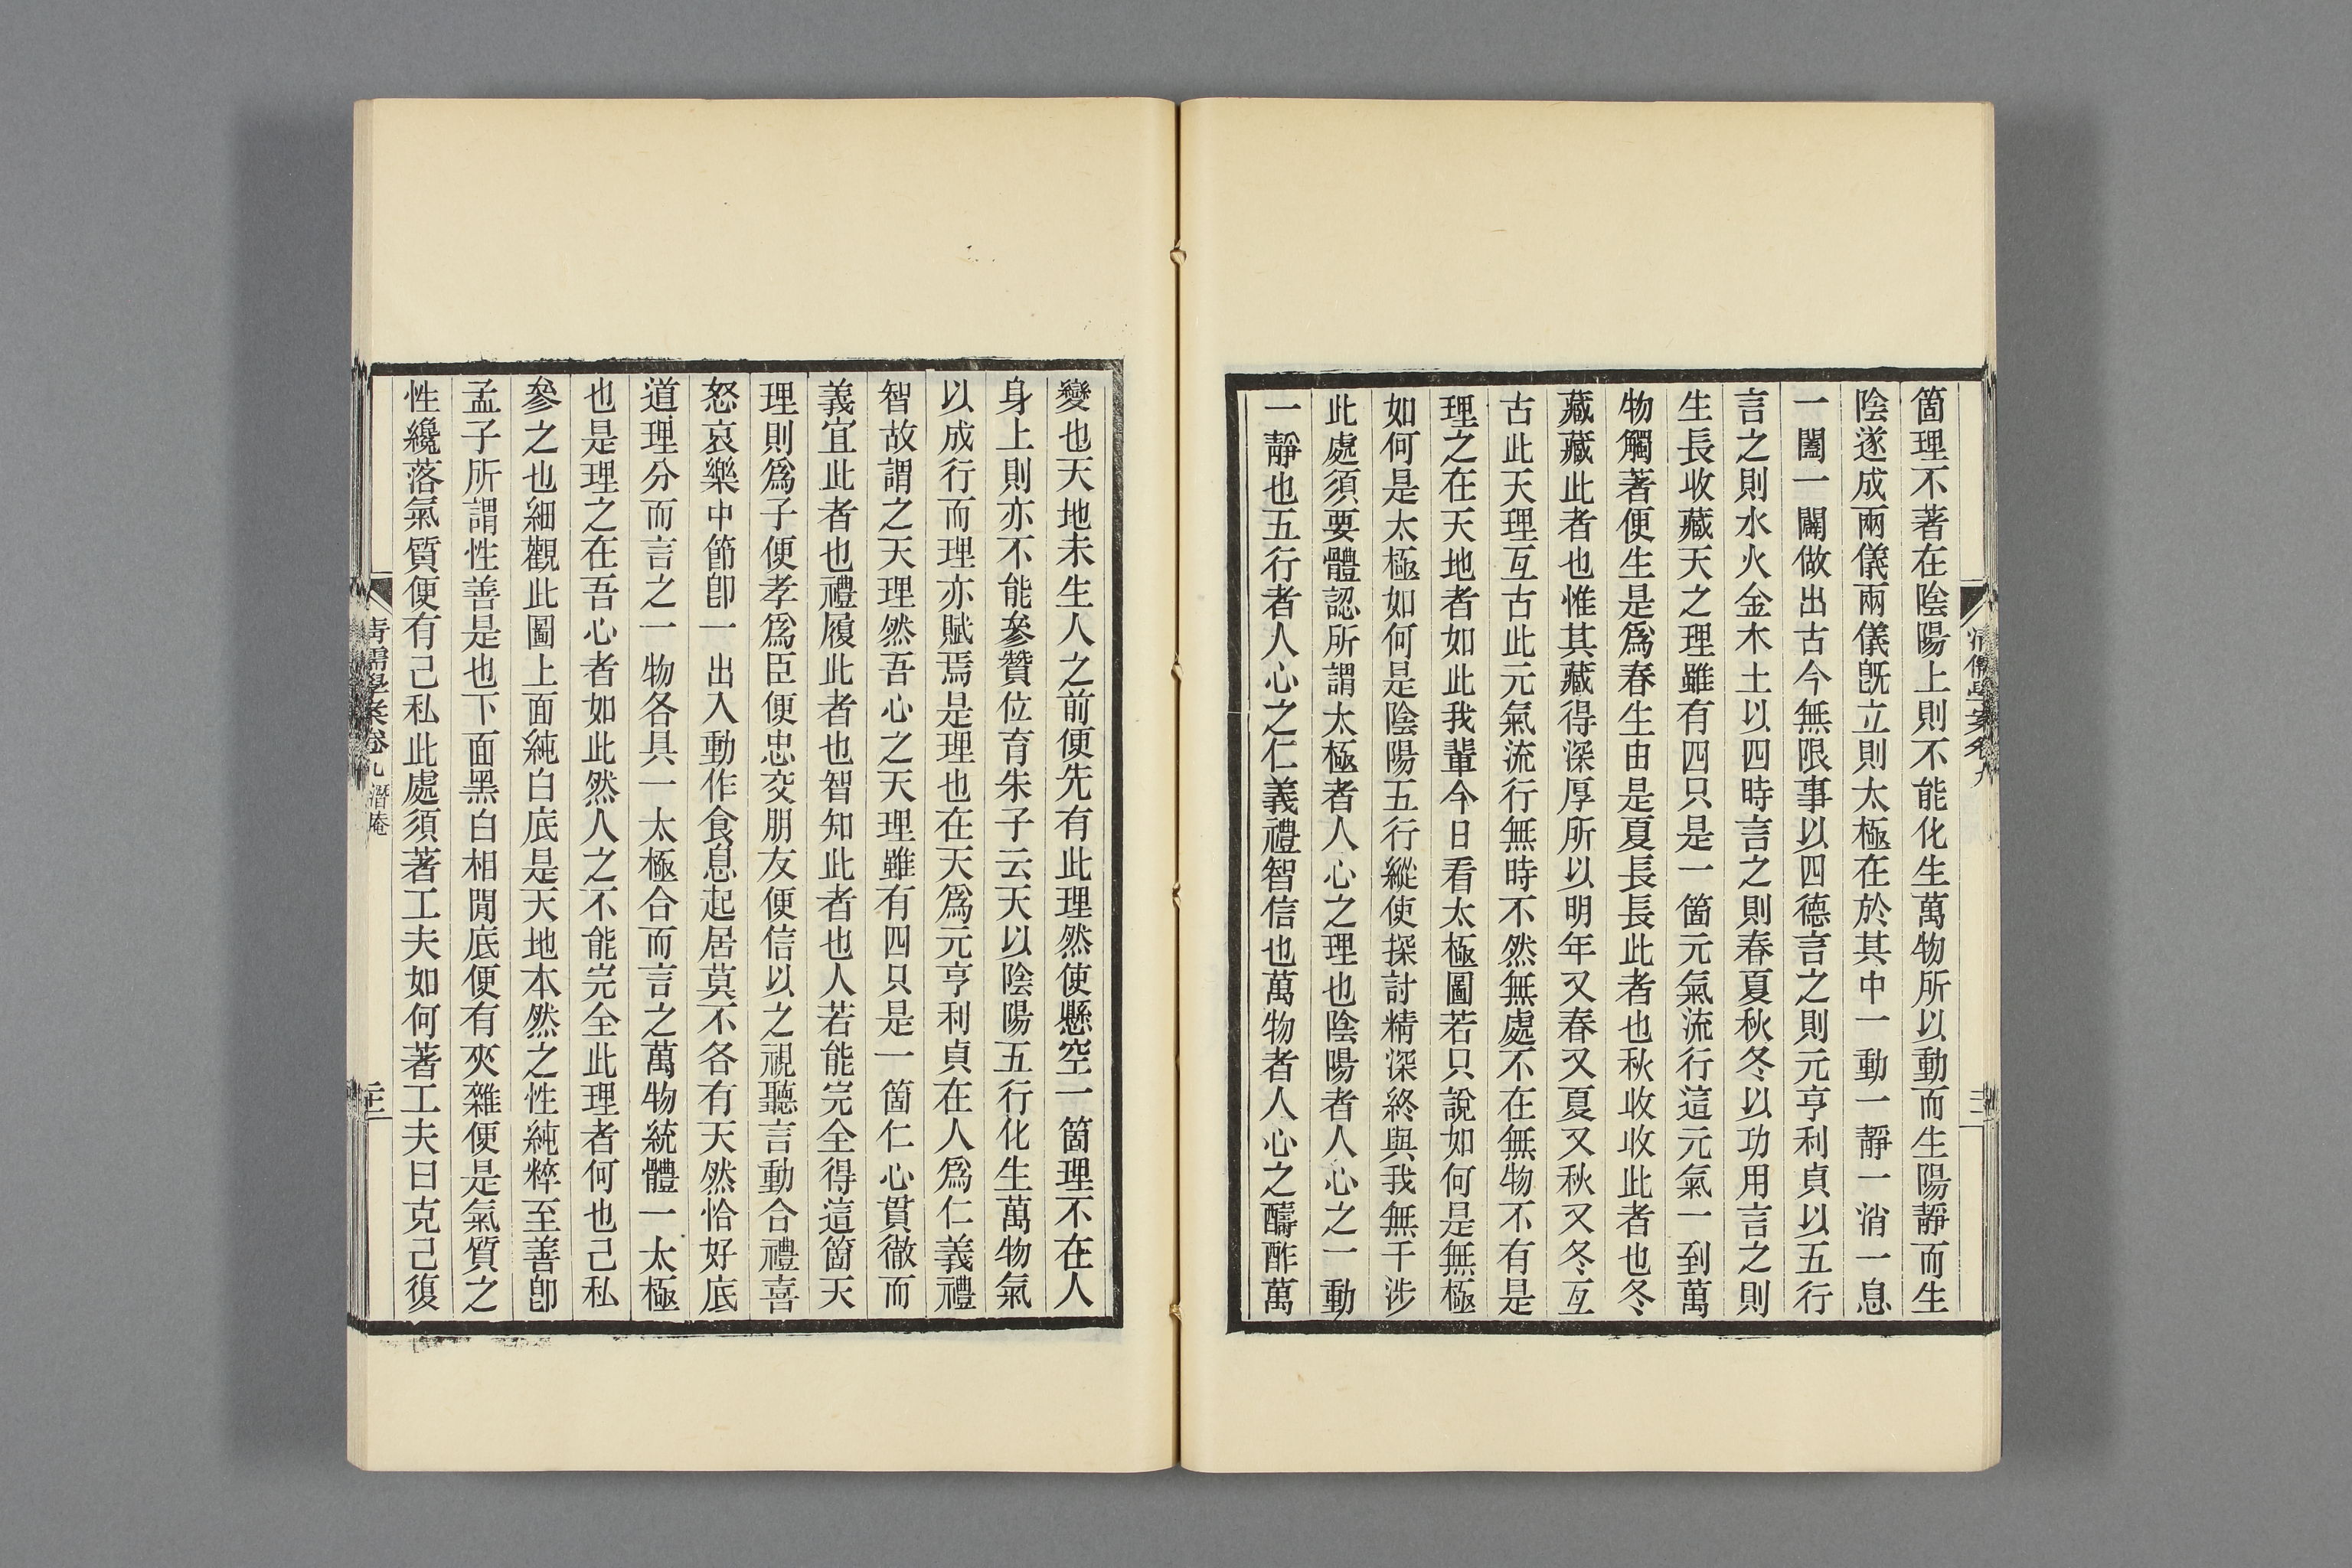 箇理不著在陰陽上則不能化生萬物所以動而生陽靜而生
陰遂成兩儀兩儀旣立則太極在於其中一動一靜一消一息
一闔一闢做出古今無限事以四德言之則元亨利貞以五行
言之則水火金木土以四時言之則春夏秋冬以功用言之則
生長收藏天之理雖有四只是一箇元氣流行這元氣一到萬
物觸著便生是爲春生由是夏長長此者也秋收收此者也冬
藏藏此者也惟其藏得深厚所以明年又春又夏又秋又冬亙
古此天理亙古此元氣流行無時不然無處不在無物不有是
理之在天地者如此我輩今日看太極圖若只說如何是無極
如何是太極如何是陰陽五行縱使探討精深終與我無干涉
此處須要體認所謂太極者人心之理也陰陽者人心之一動
一靜也五行者人心之仁義禮智信也萬物者人心之醻酢萬
變也天地未生人之前便先有此理然使懸空一箇理不在人
身上則亦不能參贊位育朱子云天以陰陽五行化生萬物氣
以成行而理亦賦焉是理也在天爲元亨利貞在人爲仁義禮
智故謂之天理然吾心之天理雖有四只是一箇仁心貫徹而
義宜此者也禮履此者也智知此者也人若能完全得這箇天
理則爲子便孝爲臣便忠交朋友便信以之視聽言動合禮喜
怒哀樂中節卽一出入動作食息起居莫不各有天然恰好底
道理分而言之一物各具一太極合而言之萬物統體一太極
也是理之在吾心者如此然人之不能完全此理者何也己私
參之也細觀此圖上面純白底是天地本然之性純粹至善卽
孟子所謂性善是也下面黑白相閒底便有夾雜便是氣質之
性纔落氣質便有己私此處須著工夫如何著工夫曰克己復
清儒學案卷九 潛庵